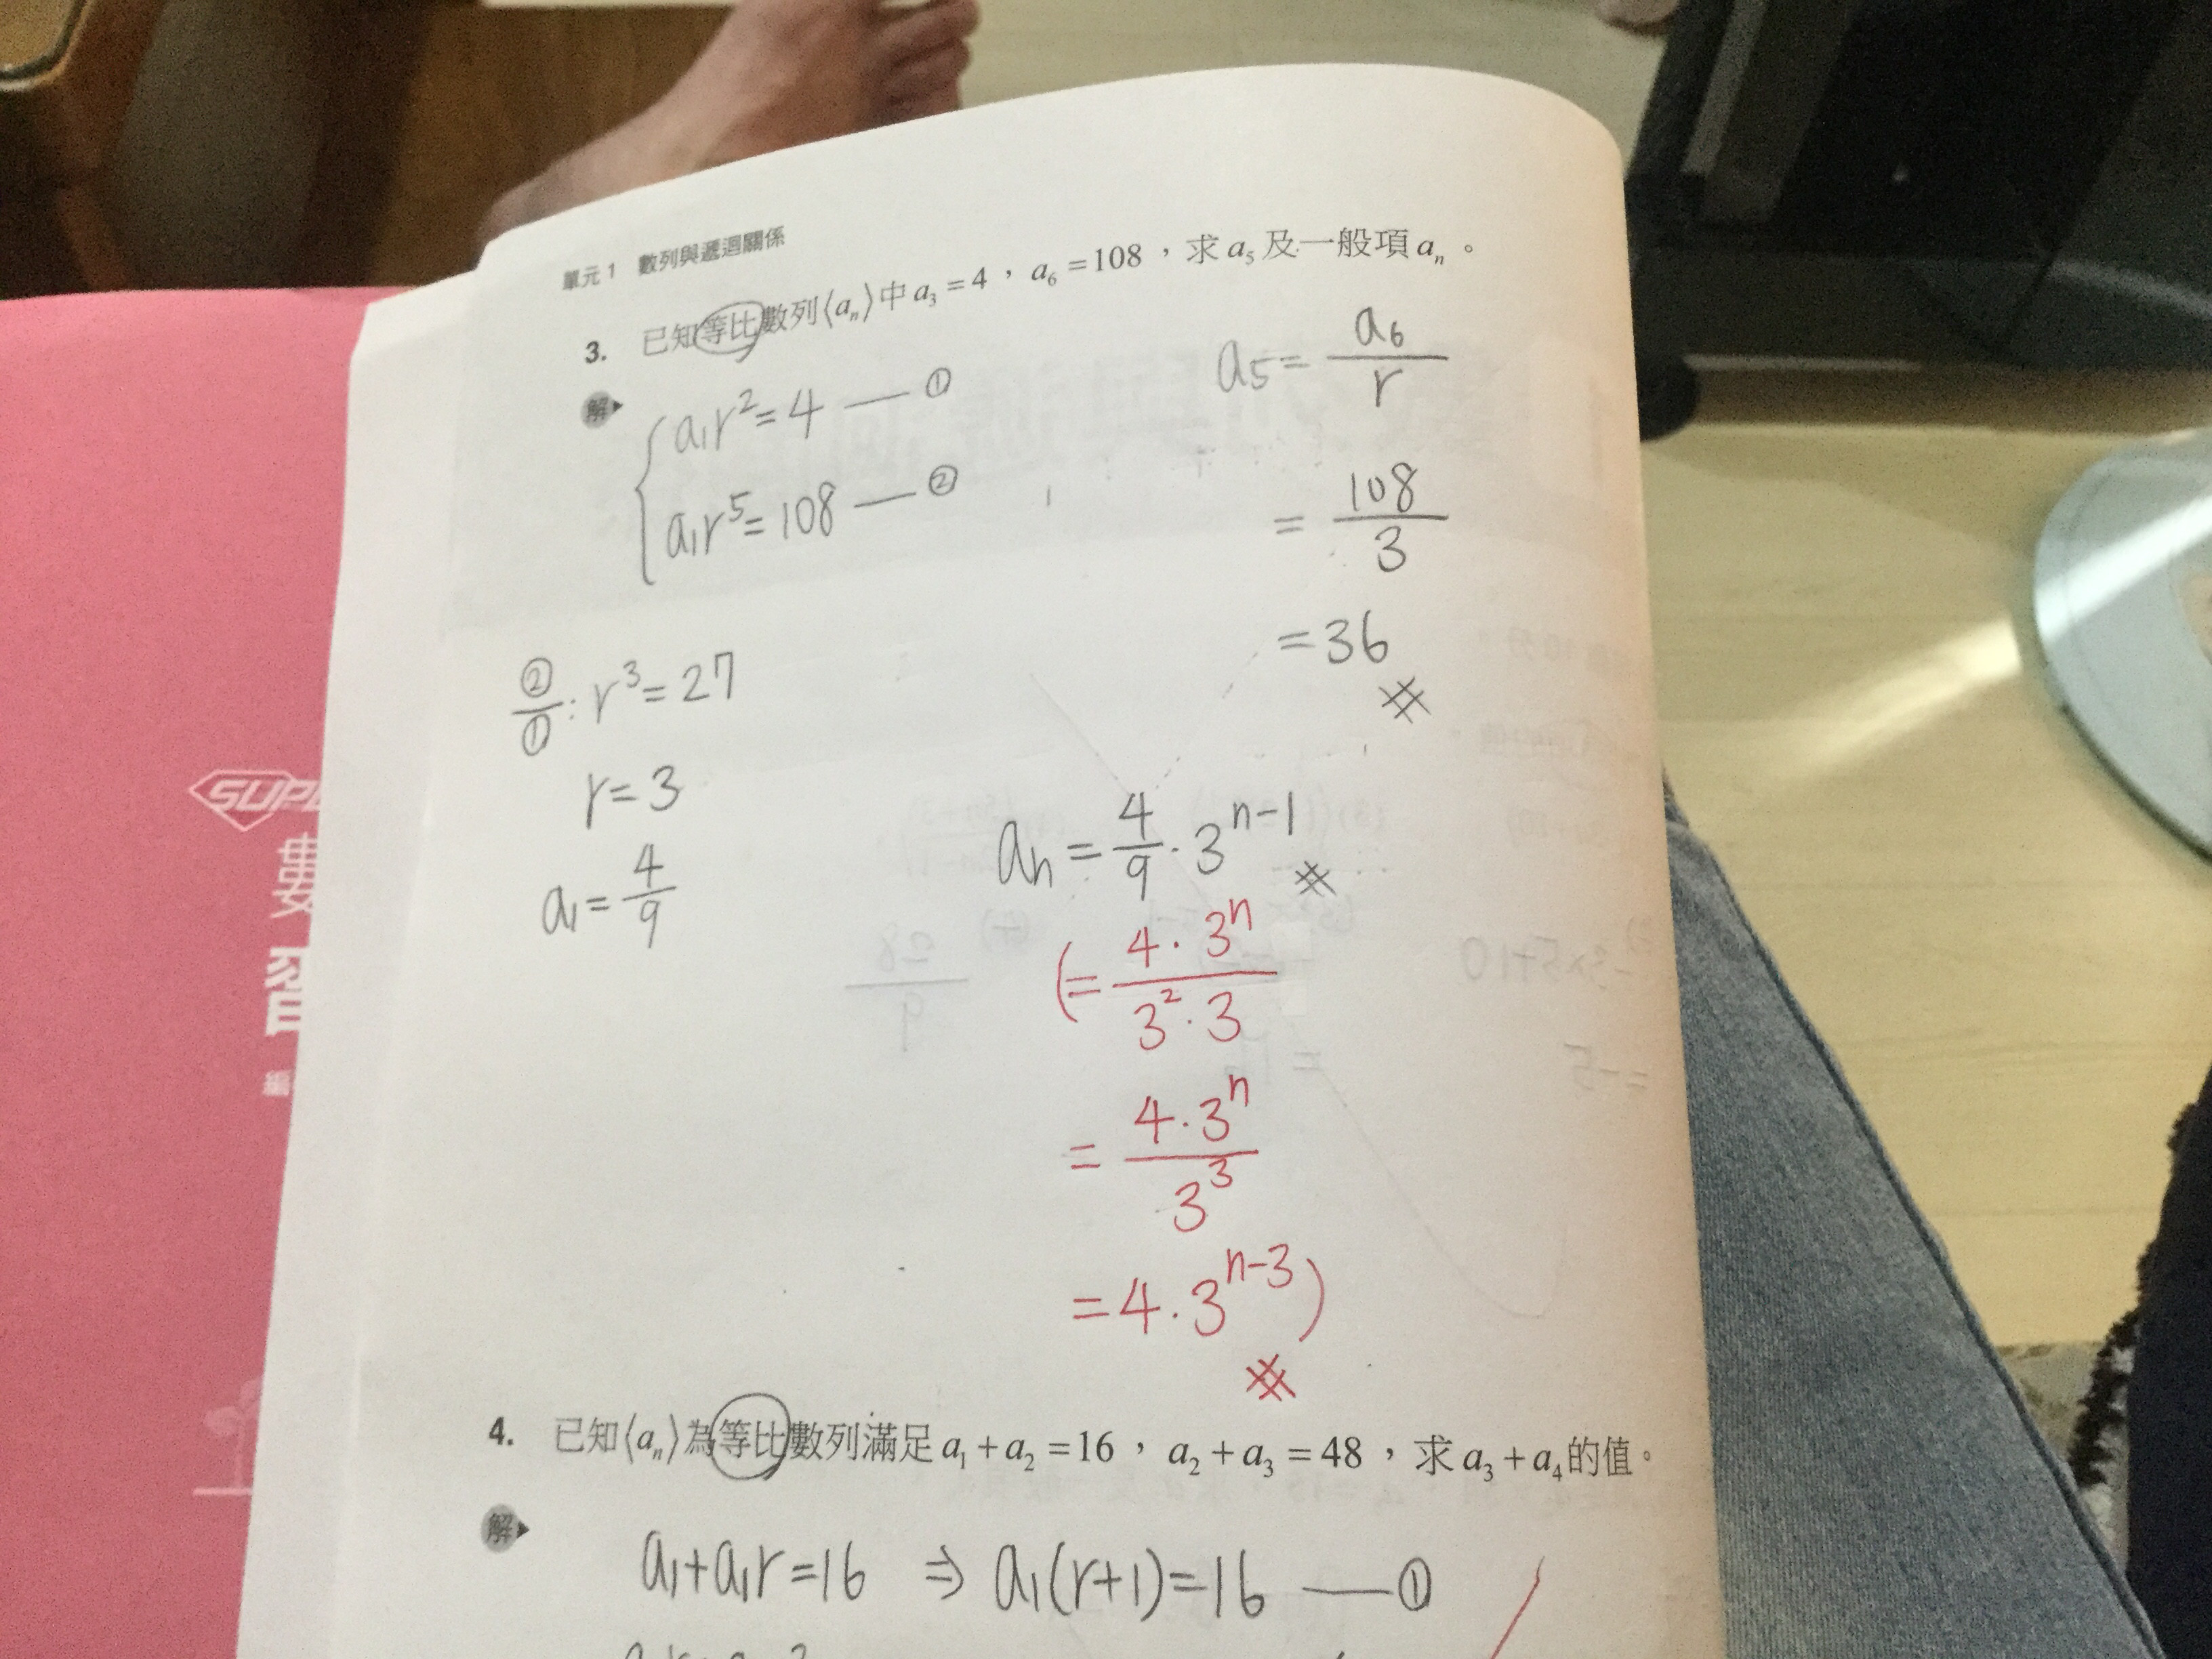 單元1 數列與遞迴關係
3. 已知等比數列⟨aₙ⟩中 a₃=4，a₆=108，求 a₅ 及一般項 aₙ。
解▶
a₁r²=4 — ①
a₁r⁵=108 — ②
②/① : r³=27
r=3
a₁=4/9
a₅=a₆/r
=108/3
=36
aₙ=4/9·3ⁿ⁻¹
(=4·3ⁿ/3²·3
=4·3ⁿ/3³
=4·3ⁿ⁻³)
4. 已知⟨aₙ⟩為等比數列滿足 a₁+a₂=16，a₂+a₃=48，求 a₃+a₄的值。
解▶
a₁+a₁r=16 ⇒ a₁(r+1)=16 — ①
SUPE